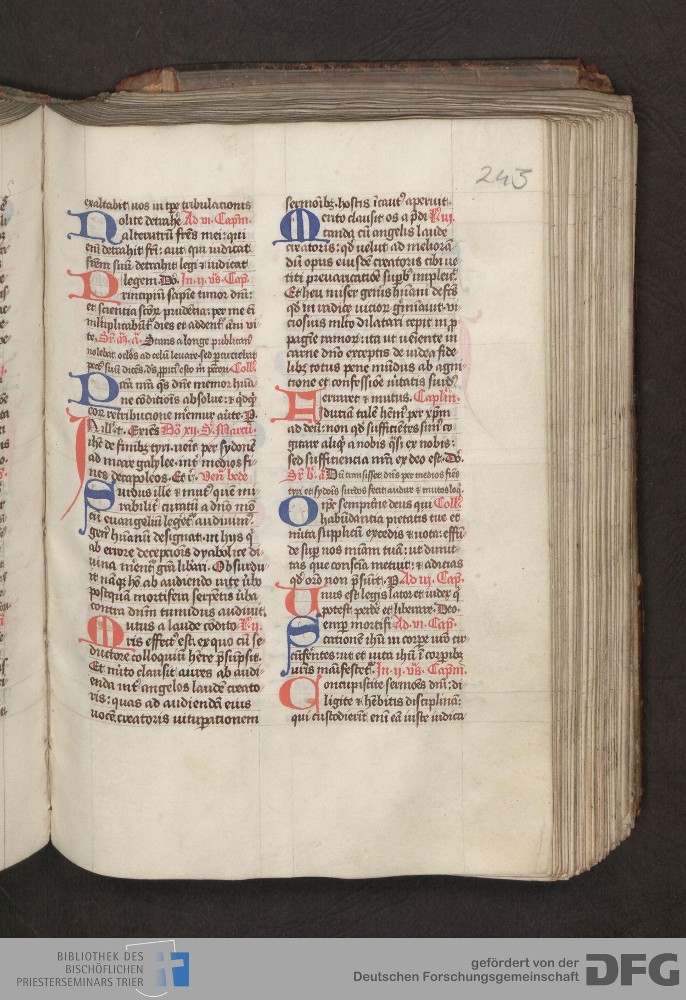 243
exaltabit vos in tpe tribulationis
Nolite detrahe Ad vi. Caplm.
alterutru fres mei: qui
eni detrahit fri: aut qui iudicat
frem suu detrahit legi et iudicat
legem. Do. In. ii. vs. Cap.
Principiu sapie timor dni:
et scientia scorum prudetia: per me eni
multiplicabut dies et addent ani vi
te. Stans a longe publican
nolebat oclos ad celu levare: sed percuciebat
pect suu dices. ds Coll.
Peccata nra qs dne memor huma
ne coditionis absolve: et qdqd
eorum retribucione meremur averte. P.
Exies Do xii. Marcu
ihc de finibus tyri. venit per sydone
ad mare galylee. int medios fi
nes decapoleos. Et Ven bede
Surdus ille et mut quem mi
rabilit curatu a dno mo
cu evangeliu legeret audivim
gen humanu designat. in hijs q
ab errore decepcois dyabolice di
vina meret gra libari. Obsurdu
it naqz ho ab audiendo vite verbo
postquam mortifera serpetis verba
contra dnm tumidus audivit.
Mutus a laude coditoris
effect est. ex quo cu se
ductore colloquiu here presupsit.
Et merito clausit aures ab audi
enda int angelos laude creato
ris: quas ad audienda eius
voce creatoris vituperationem
sermoibz hostis icaut aperuit.
Merito clausit os a pdi
canda cu angelis laude
creatoris: qd velut ad meliora
diu opus eiusde creatoris cibi ve
titi prevaricatione superb implevit.
Et heu miser genus humani defectus
qd in radice vicior germiavit vi
ciosius mlto dilatari cepit in pro
pagie ramor: ita ut veniente in
carne dno exceptis de iudea fide
libz totus pene mudus ab agni
tione et confessioe veritatis surd
Erraret et mutus. Caplm.
Fiduciam tale hemus per xpm
ad deu: non qd sufficietes simus co
gitare aliquid a nobis qsi ex nobis:
sed sufficiencia nra ex deo est. Do.
Du transisset dns per medios fies
tyri et sydois surdos fecit audire et mutos loq.
Omps sempiterne deus qui Coll.
habundantia pietatis tue et
merita supplicu excedis et vota: effu
de super nos miam tua: ut dimit
tas que conscia metuit: et adicias
qd oro non psumit. P. Ad iii. Cap.
Unus est legis lator et iudex qui
potest perdere et liberare. Deo.
Semper mortifi Ad. vi. Cap.
catione ihu in corpore nro cir
cuferentes: ut et vita ihu i corporibz
nris maifestetur. In. ii. vs. Caplm.
Concupiscite sermoes dni: di
ligite et hebitis disciplina:
qui custodierint eni ea iuste iudica
BIBLIOTHEK DES
BISCHÖFLICHEN
PRIESTERSEMINARS TRIER
gefördert von der
Deutschen Forschungsgemeinschaft
DFG